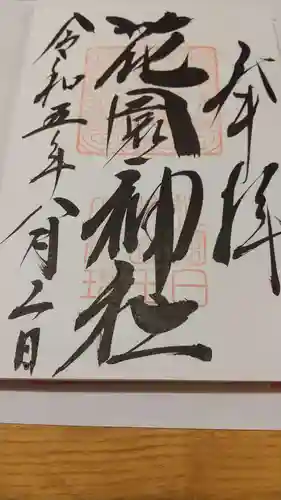 奉拝
花園神社
令和五年八月二日